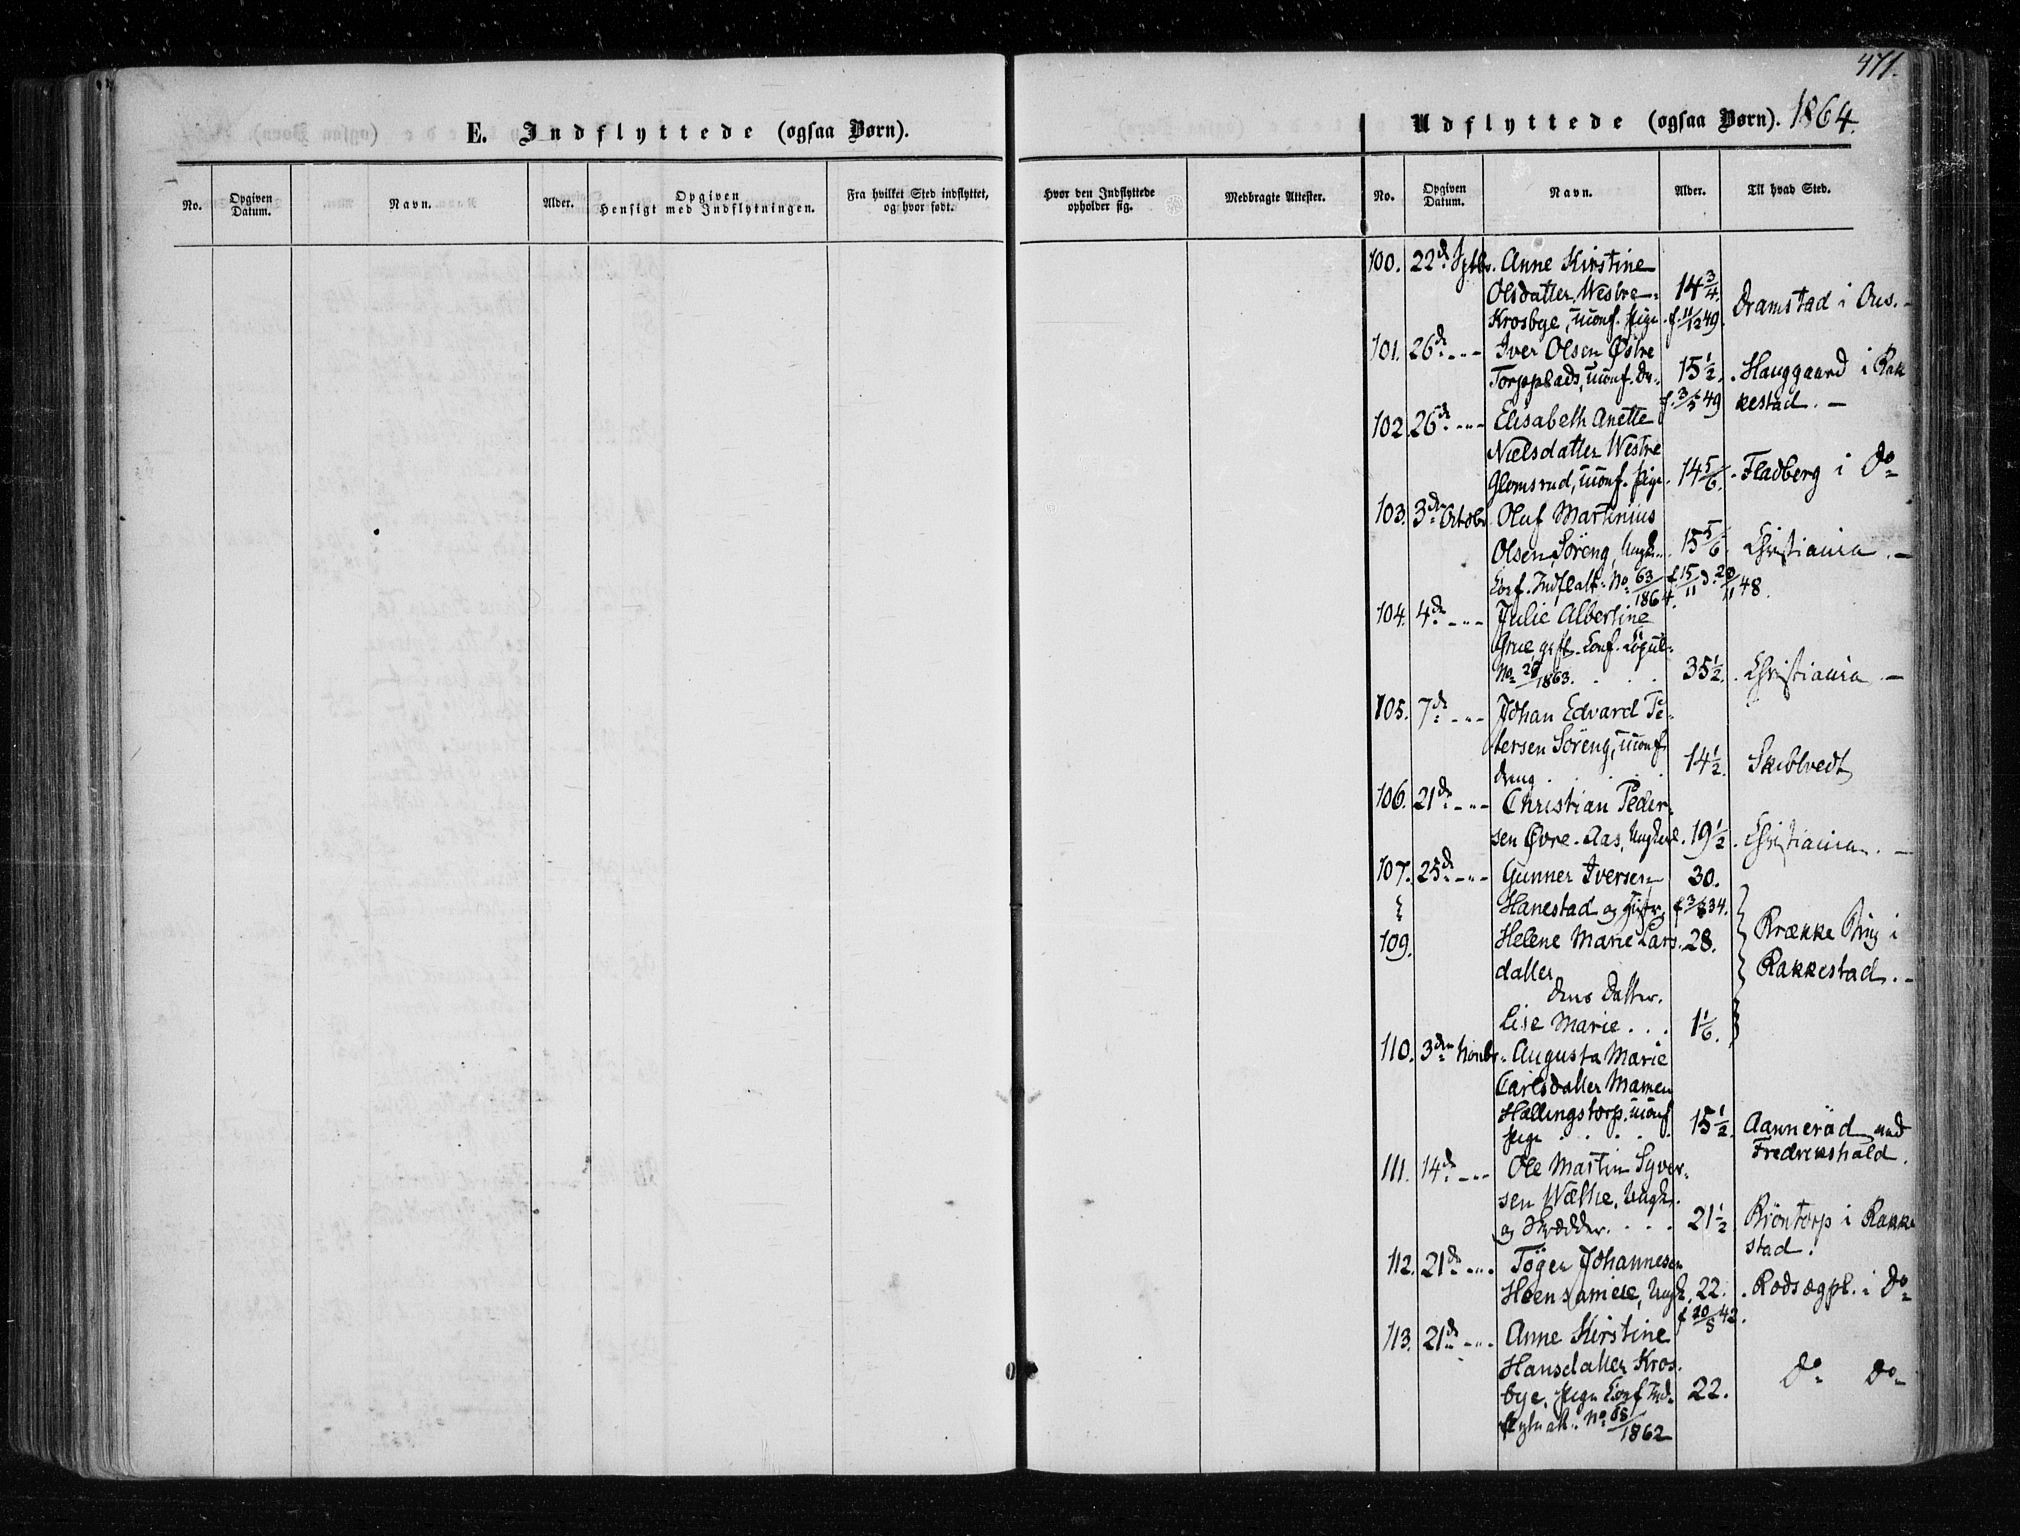 471.
E. Indflyttede (ogsaa Børn).
Udflyttede (ogsaa Børn). 1864.
No. Opgiven Datum. Navn. Alder. Opgiven Hensigt med Indflytningen. Fra hvilket Sted indflyttet, og hvor født. Hvor den Indflyttede opholder sig. Medbragte Attester. No. Opgiven Datum. Navn. Alder. Til hvad Sted.
100. 22d. Sptbr. Anne Kirstine
Olsdatter, Westre- 14 3/4.
Krosbye, uconf. Pige. f. 11/12 49. Dramstad i Aas. -
101. 26d. -"- Iver Olsen Østre
Torpplads, uconf. Dr. 15 1/2. Hauggaard i Rak
f. 3/5 49 kestad. -
102. 26d. -"- Elisabeth Anette
Nielsdatter Westre
Glomsrud, uconf. Pige. 14 5/6. Fladberg i Do
103. 3die Octobr. Oluf Martinius
Olsen, Søreng, Ungk. 15 5/6. Christiania. -
Conf. Indfl. att. No 63/1864. f. 15/11 d. 20/11 48.
104. 4d. -"- Julie Albertine
Grue, gift. Conf.
No 28/1863. 35 1/2. Christiania. -
105. 7d. -"- Johan Edvard Pe-
tersen Søreng, uconf.
dreng 14 1/2. Skiblvedt
106. 21d. -"- Christian Peder-
sen Øvre-Aas, Ungkarl. 19 1/2. Christiania. -
107. 25d. -"- Gunner Iversen 30.
Hanestad og Hustr. f. 3/8 34.
109. Helene Marie Lars 28. Krække Ring i
datter Rakkestad. -
deres Datter.
Lise Marie . . . 1 1/6.
110. 3die Novbr. Augusta Marie
Carlsdatter Mamen
Hallingstorp. uconf.
Pige 15 1/2. Aannerød ved
Fredrikshald.
111. 14d. -"- Ole Martin Syver-
sen Wælhe, Ungk.
og Skrædder. 21 1/2. Brøntorp i Rakke
stad.
112. 21d. -"- Tøger Johannesen
Hoensameie, Ungk. 22. Rodsægpl. i Do
f. 20/5 42.
113. 21d. -"- Anne Kirstine
Hansdatter Kros-
bye, Pige Conf. Ind- 22. Do Do
flytn. att. No 68/1862